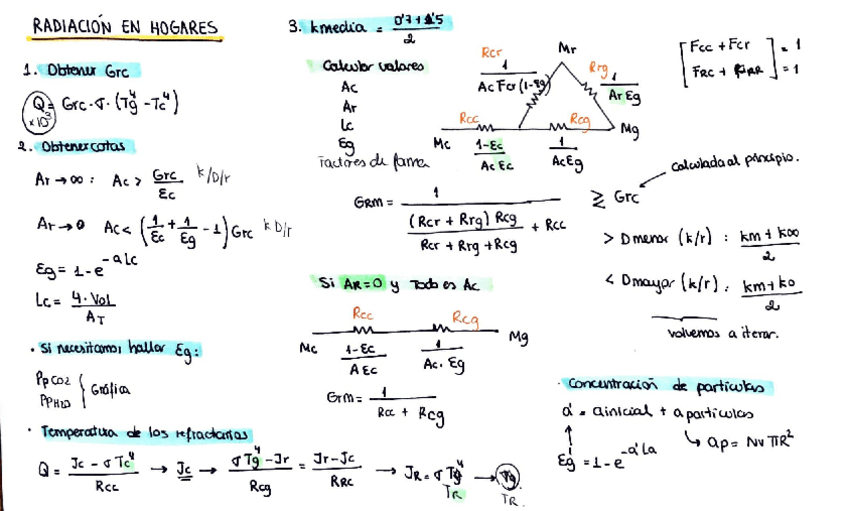 RADIACIÓN EN HOGARES
1. Obtener Grc
Q = Grc·σ·(Tg⁴ - Tc⁴)
×10³
2. Obtener cotas
Ar → ∞ : Ac > Grc/εc K/D/r
Ar → 0 Ac < (1/εc + 1/εg - 1) Grc K D/r
εg = 1 - e^-aLc
Lc = 4·Vol/AT
· Si necesitamos hallar εg:
PpCO2
PPH2O } Gráfica
· Temperatura de los refractarios
Q = (Jc - σTc⁴)/Rcc → Jc → (σTg⁴ - Jr)/Rcg = (Jr - Jc)/RRC → JR = σTg⁴ → Tg
TR TR
3. kmedia = (0'7 + 1'5)/2
Calcular valores
Ac
Ar
Lc
Eg
Factores de forma
Mr
Rcr
1/(Ac Fcr (1-εg))
Rrg
1/(Ar εg)
Rcc
Rcg
Mc
(1-εc)/(Ac εc)
1/(Ac εg)
Mg
[Fcc + Fcr] = 1
[FRC + FRR] = 1
GRM = 1/((Rcr + Rrg) Rcg/(Rcr + Rrg + Rcg) + Rcc) ≷ Grc
calculada al principio.
> Dmenor (k/r) : (km + k∞)/2
< Dmayor (k/r) : (km + ko)/2
volvemos a iterar.
Si AR=0 y Todo es Ac
Rcc Rcg
Mc (1-εc)/(A εc) 1/(Ac·εg) Mg
Grm = 1/(Rcc + Rcg)
· Concentración de partículas
a' = a inicial + a partículas
↳ ap = Nv πR²
εg' = 1 - e^-a'La